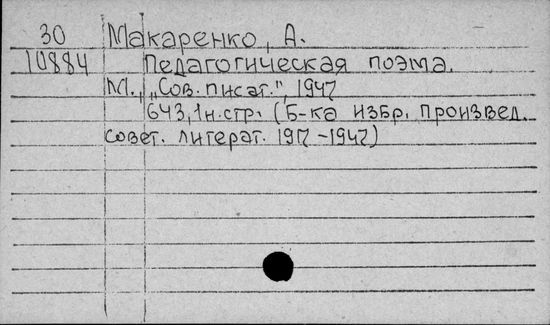 30 Макаренко, А.
10884 Педагогическая поэма.
М., „Сов. писат.", 1947
643, 1н.стр. (Б-ка избр. произвед.
совет. литерат. 1917-1947)